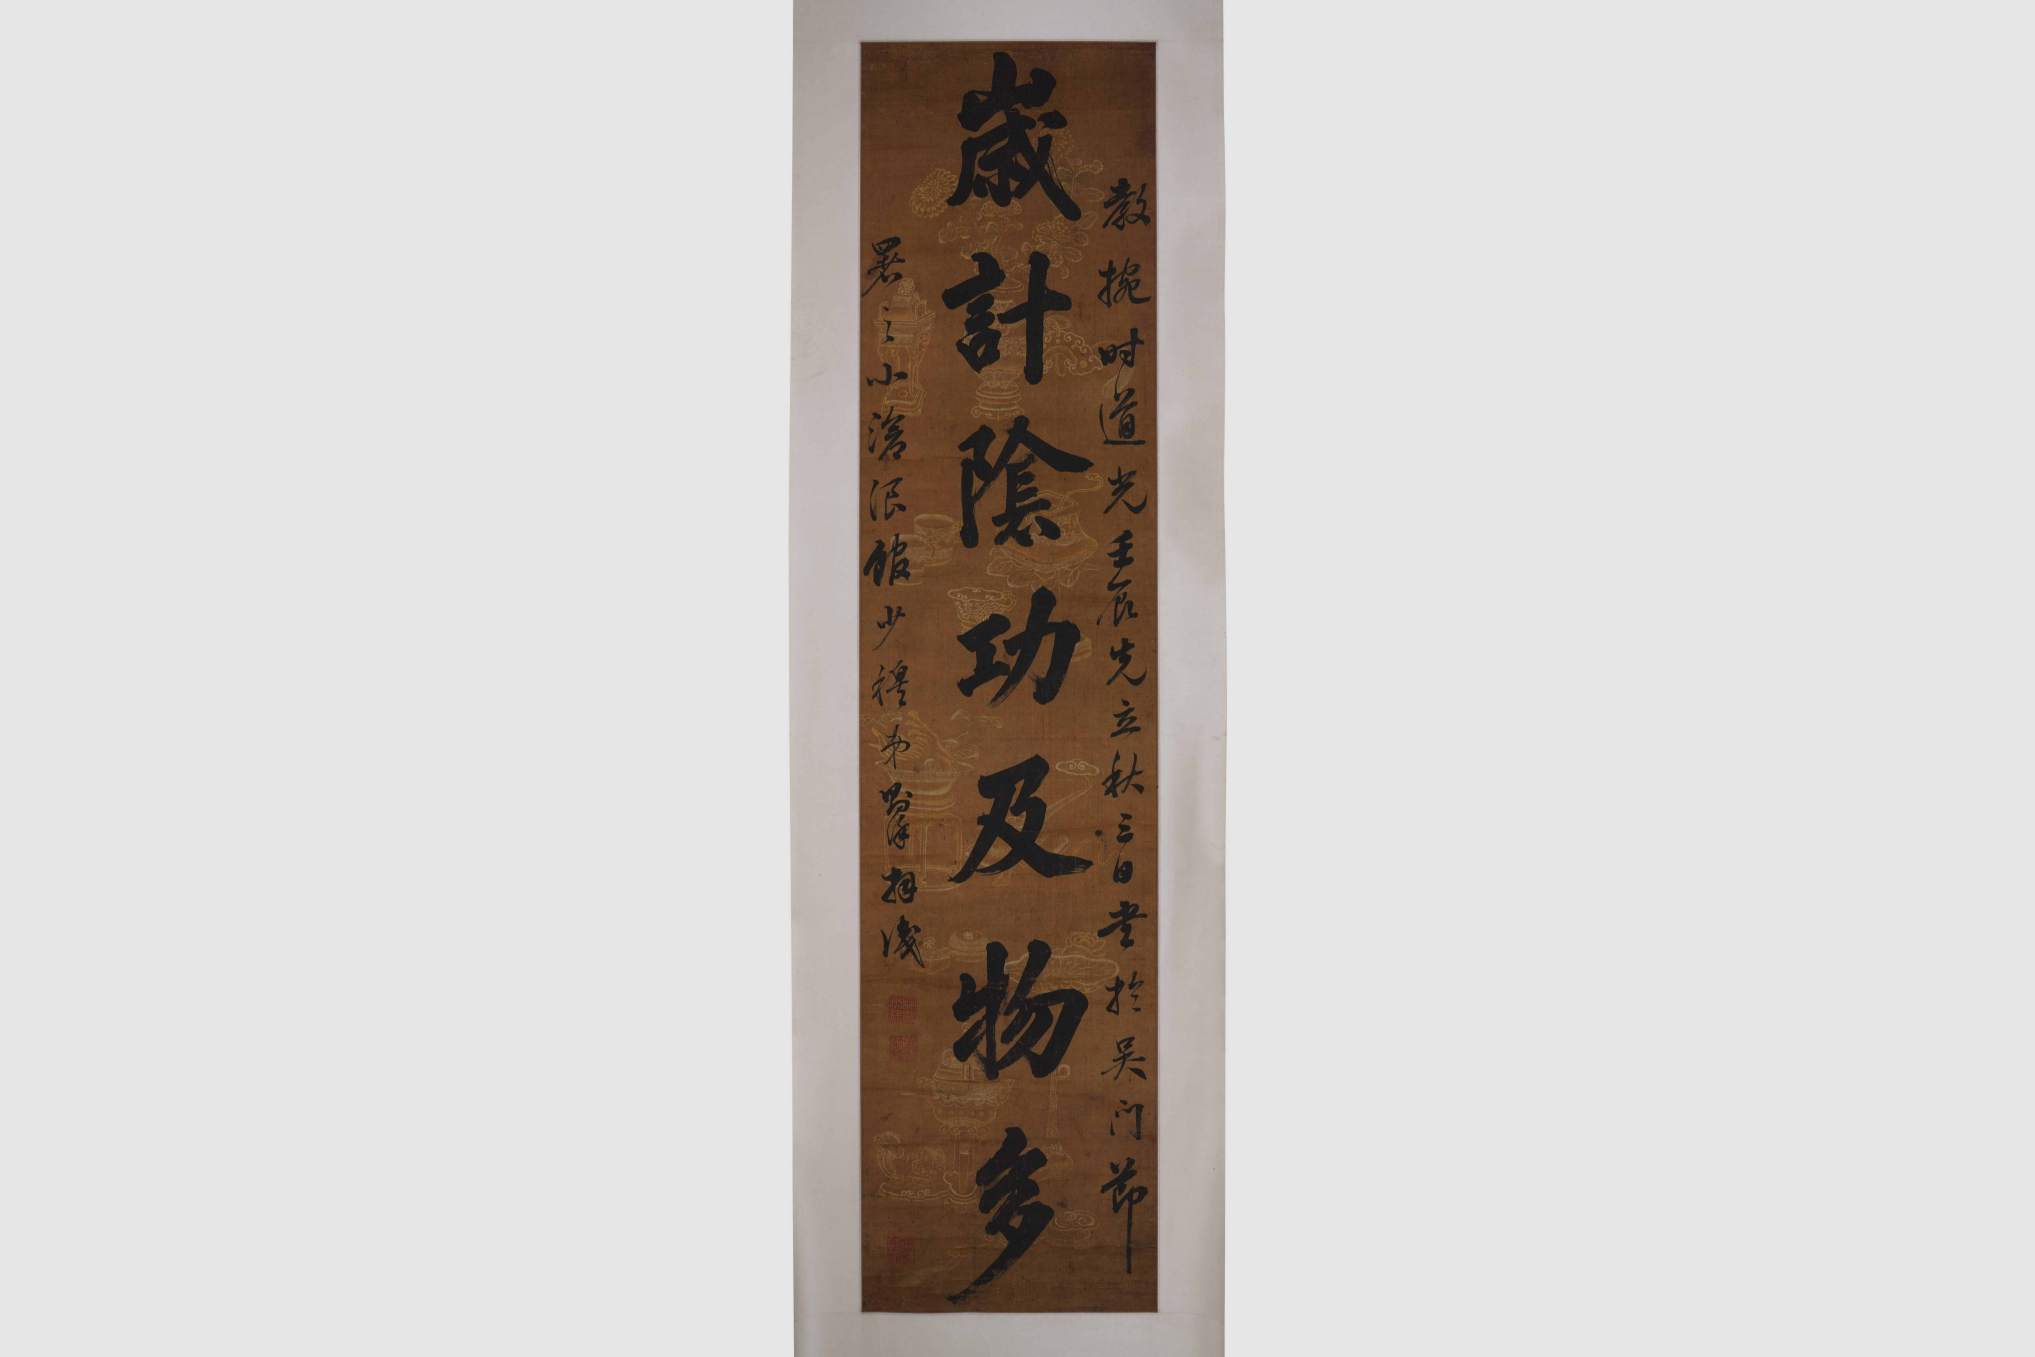 教捥时道光壬辰先立秋三日書於吳门節
歲計陰功及物多
署之小滄浪館少穆弟則徐拜識